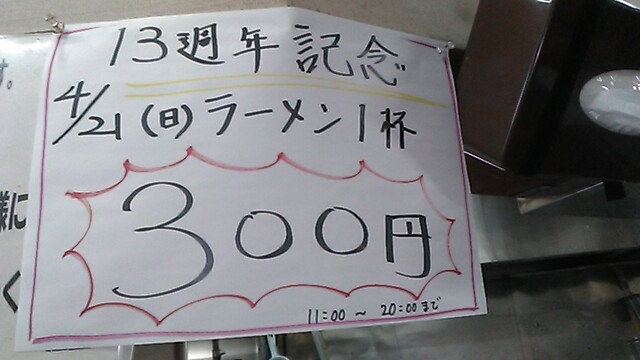 13週年記念
4/21(日)ラーメン1杯
300円
11:00 〜 20:00まで
す。
様に
く